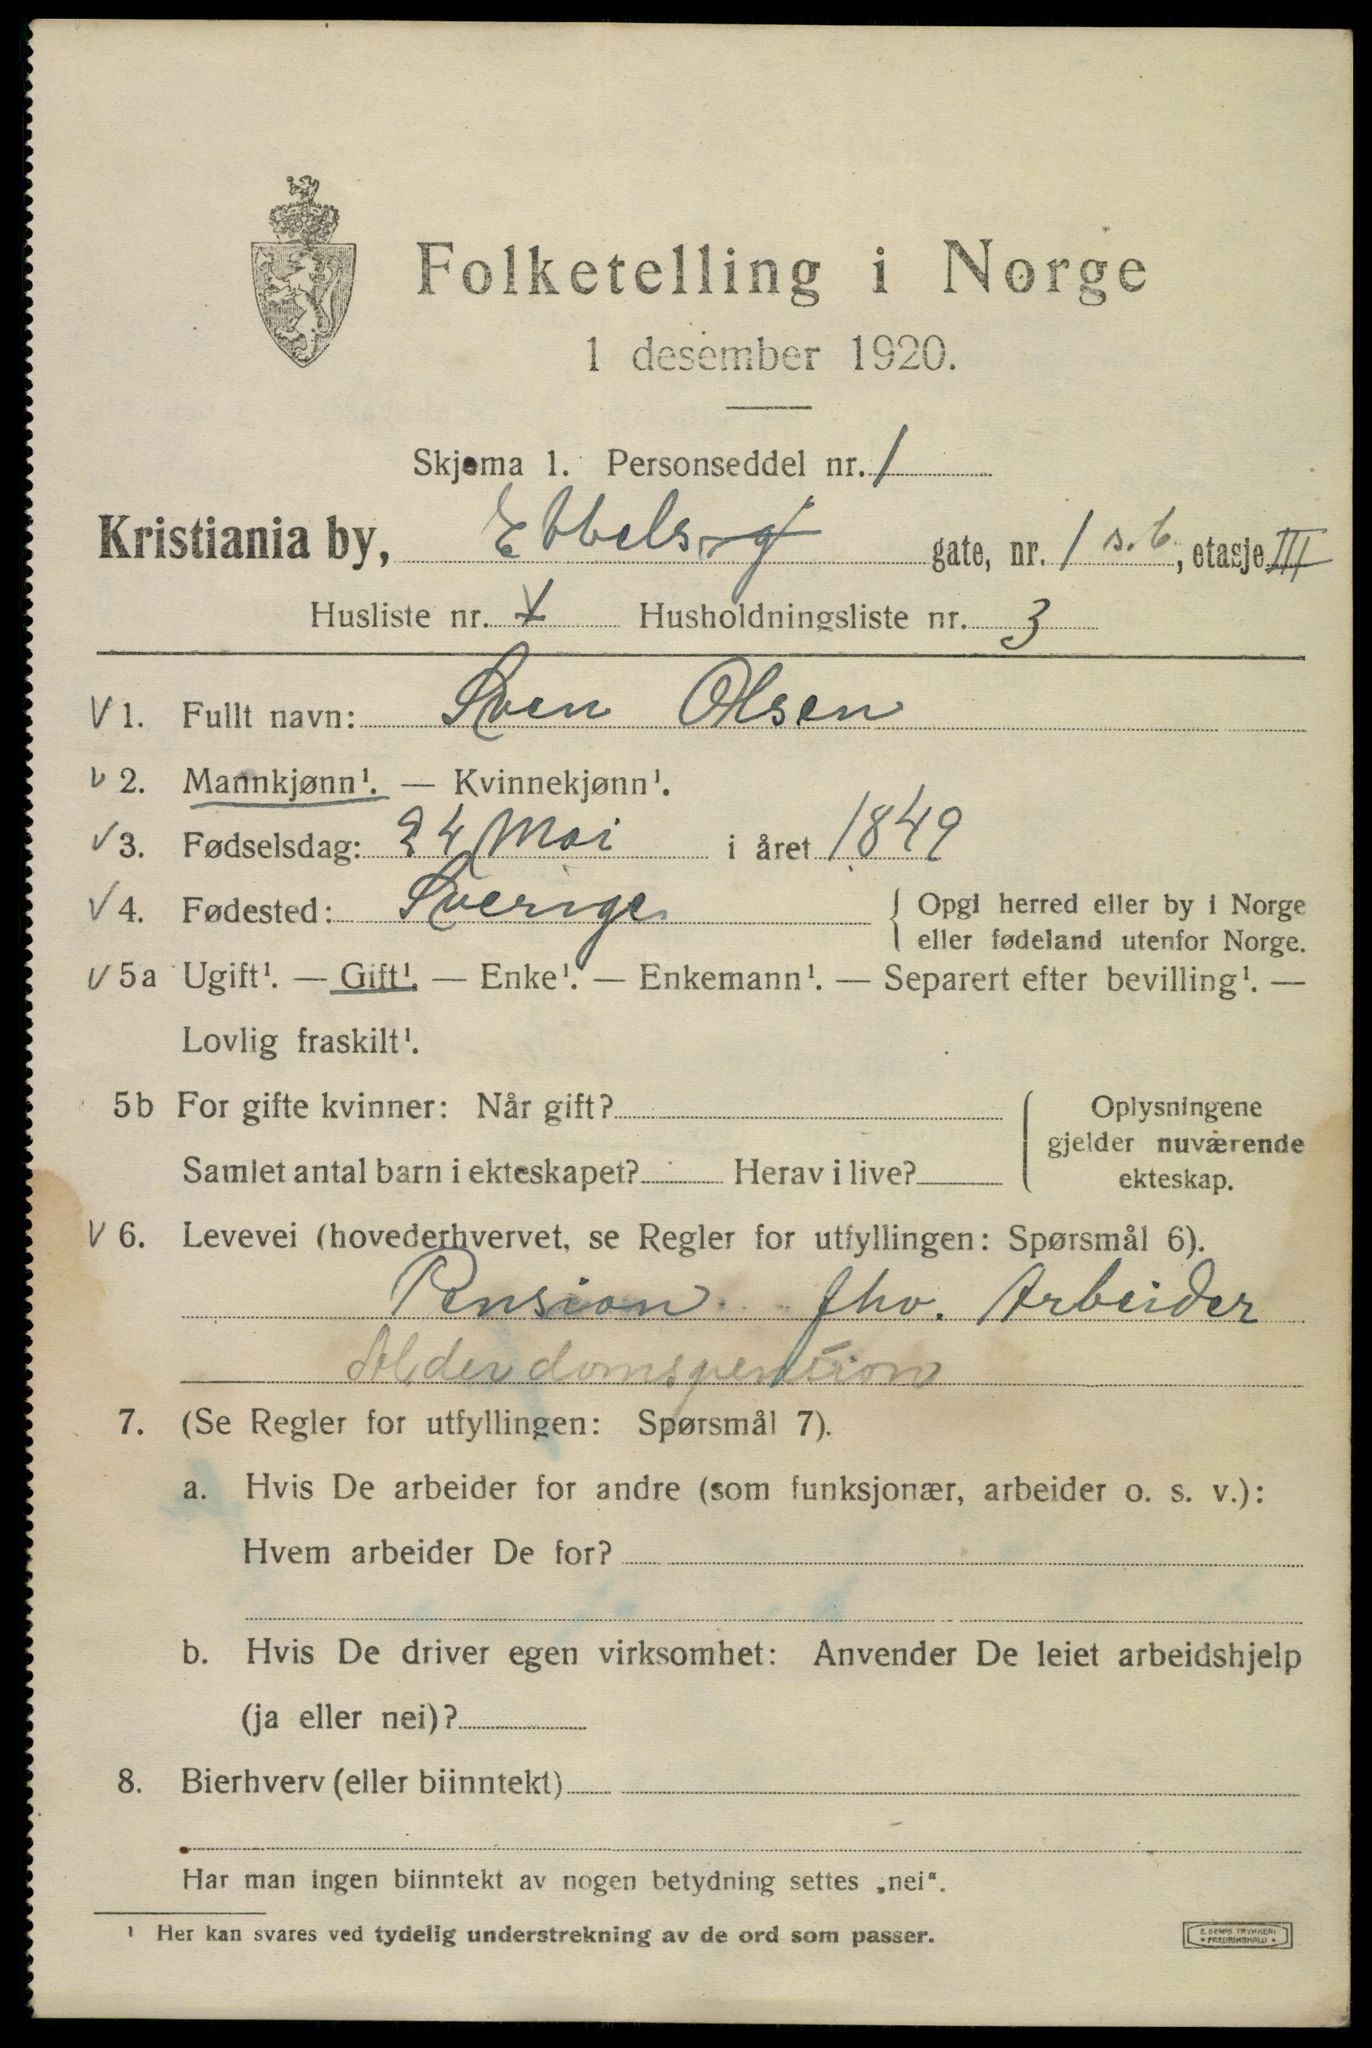 Folketelling i Norge
1 desember 1920.
Skjema 1. Personseddel nr. 1
Kristiania by, Ebbels g gate, nr. 1 s.b, etasje III
Husliste nr. Husholdningsliste nr. 3
V 1. Fullt navn: Sven Olsen
V 2. Mannkjønn¹. — Kvinnekjønn¹.
V 3. Fødselsdag: 24 Mai i året 1849
V 4. Fødested: Sverige { Opgi herred eller by i Norge
eller fødeland utenfor Norge.
V 5a Ugift¹. — Gift¹. — Enke¹. — Enkemann¹. — Separert efter bevilling¹. —
Lovlig fraskilt¹.
5b For gifte kvinner: Når gift? { Oplysningene
gjelder nuværende
Samlet antal barn i ekteskapet? Herav i live? ekteskap.
V 6. Levevei (hovederhvervet, se Regler for utfyllingen: Spørsmål 6).
Pension fhv. Arbeider
Alderdomspension
7. (Se Regler for utfyllingen: Spørsmål 7).
a. Hvis De arbeider for andre (som funksjonær, arbeider o. s. v.):
Hvem arbeider De for?
b. Hvis De driver egen virksomhet: Anvender De leiet arbeidshjelp
(ja eller nei)?
8. Bierhverv (eller biinntekt)
Har man ingen biinntekt av nogen betydning settes „nei“.
¹ Her kan svares ved tydelig understrekning av de ord som passer.
E. SEMS TRYKKERI
* FREDRIKSHALD *